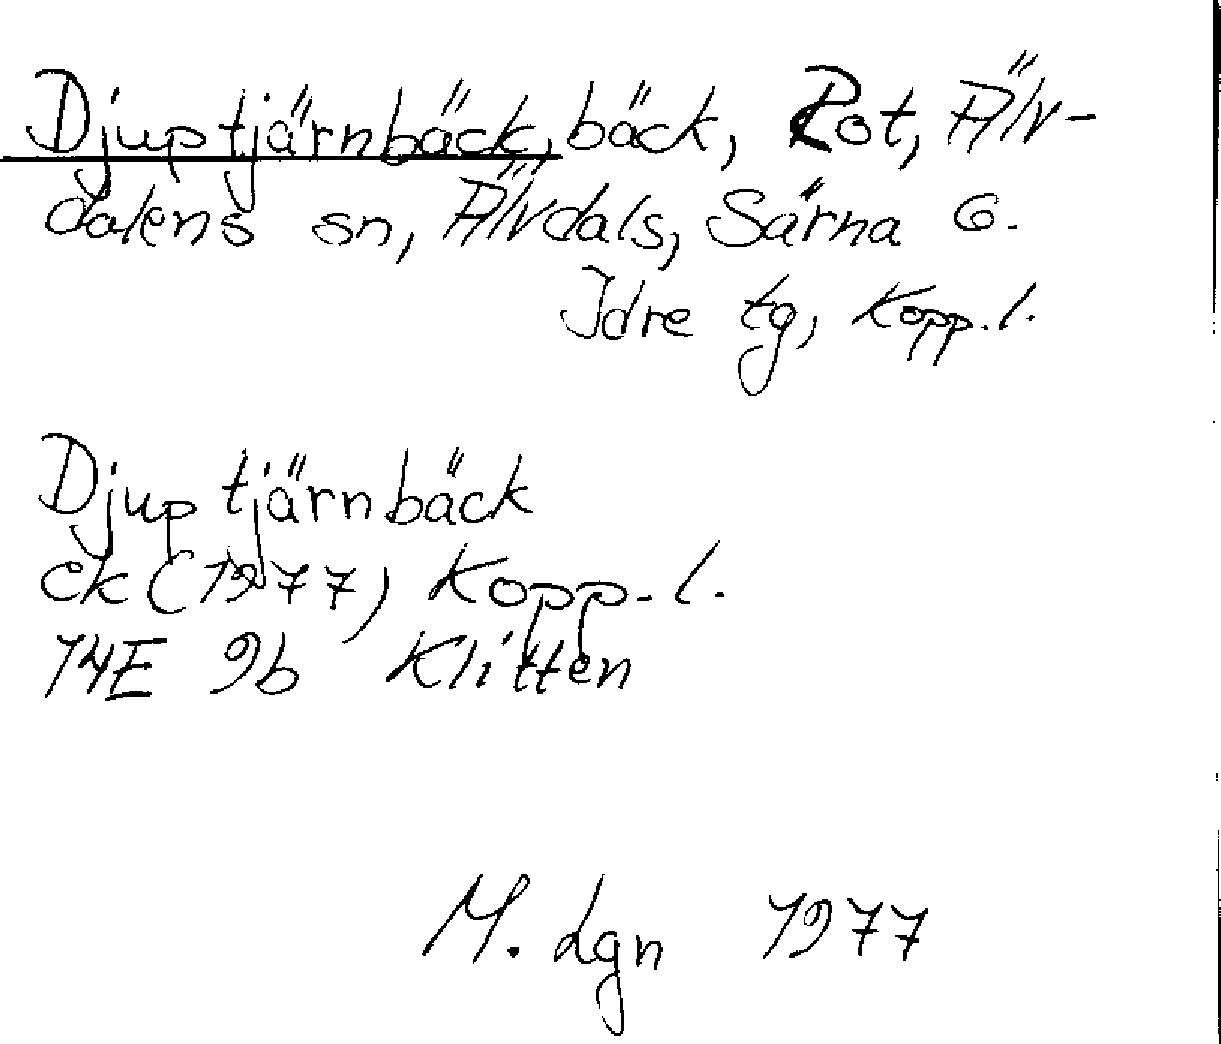 Djuptjärnbäck, bäck, Rot, Älv-
dalens sn, Älvdals, Särna o.
Idre tg, Kopp.l.
Djuptjärnbäck
ek (1977) Kopp. l.
14E 9b Klitten
M. Lgn 1977